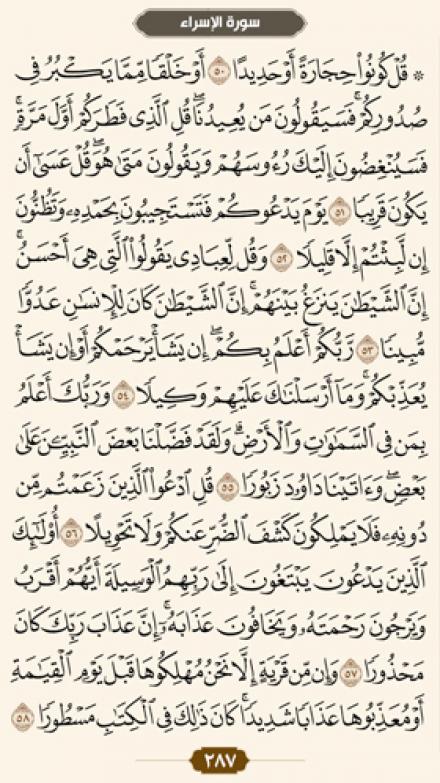 سورة الإسراء
۞ قُلْ كُونُوا۟ حِجَارَةً أَوْ حَدِيدًا ٥٠ أَوْ خَلْقًا مِّمَّا يَكْبُرُ فِى
صُدُورِكُمْ ۚ فَسَيَقُولُونَ مَن يُعِيدُنَا ۖ قُلِ ٱلَّذِى فَطَرَكُمْ أَوَّلَ مَرَّةٍ ۚ
فَسَيُنْغِضُونَ إِلَيْكَ رُءُوسَهُمْ وَيَقُولُونَ مَتَىٰ هُوَ ۖ قُلْ عَسَىٰٓ أَن
يَكُونَ قَرِيبًا ٥١ يَوْمَ يَدْعُوكُمْ فَتَسْتَجِيبُونَ بِحَمْدِهِۦ وَتَظُنُّونَ
إِن لَّبِثْتُمْ إِلَّا قَلِيلًا ٥٢ وَقُل لِّعِبَادِى يَقُولُوا۟ ٱلَّتِى هِىَ أَحْسَنُ ۚ
إِنَّ ٱلشَّيْطَٰنَ يَنزَغُ بَيْنَهُمْ ۚ إِنَّ ٱلشَّيْطَٰنَ كَانَ لِلْإِنسَٰنِ عَدُوًّا
مُّبِينًا ٥٣ رَّبُّكُمْ أَعْلَمُ بِكُمْ ۖ إِن يَشَأْ يَرْحَمْكُمْ أَوْ إِن يَشَأْ
يُعَذِّبْكُمْ ۚ وَمَآ أَرْسَلْنَٰكَ عَلَيْهِمْ وَكِيلًا ٥٤ وَرَبُّكَ أَعْلَمُ
بِمَن فِى ٱلسَّمَٰوَٰتِ وَٱلْأَرْضِ ۗ وَلَقَدْ فَضَّلْنَا بَعْضَ ٱلنَّبِيِّـۧنَ عَلَىٰ
بَعْضٍ ۖ وَءَاتَيْنَا دَاوُۥدَ زَبُورًا ٥٥ قُلِ ٱدْعُوا۟ ٱلَّذِينَ زَعَمْتُم مِّن
دُونِهِۦ فَلَا يَمْلِكُونَ كَشْفَ ٱلضُّرِّ عَنكُمْ وَلَا تَحْوِيلًا ٥٦ أُو۟لَٰٓئِكَ
ٱلَّذِينَ يَدْعُونَ يَبْتَغُونَ إِلَىٰ رَبِّهِمُ ٱلْوَسِيلَةَ أَيُّهُمْ أَقْرَبُ
وَيَرْجُونَ رَحْمَتَهُۥ وَيَخَافُونَ عَذَابَهُۥٓ ۚ إِنَّ عَذَابَ رَبِّكَ كَانَ
مَحْذُورًا ٥٧ وَإِن مِّن قَرْيَةٍ إِلَّا نَحْنُ مُهْلِكُوهَا قَبْلَ يَوْمِ ٱلْقِيَٰمَةِ
أَوْ مُعَذِّبُوهَا عَذَابًا شَدِيدًا ۚ كَانَ ذَٰلِكَ فِى ٱلْكِتَٰبِ مَسْطُورًا ٥٨
٢٨٧